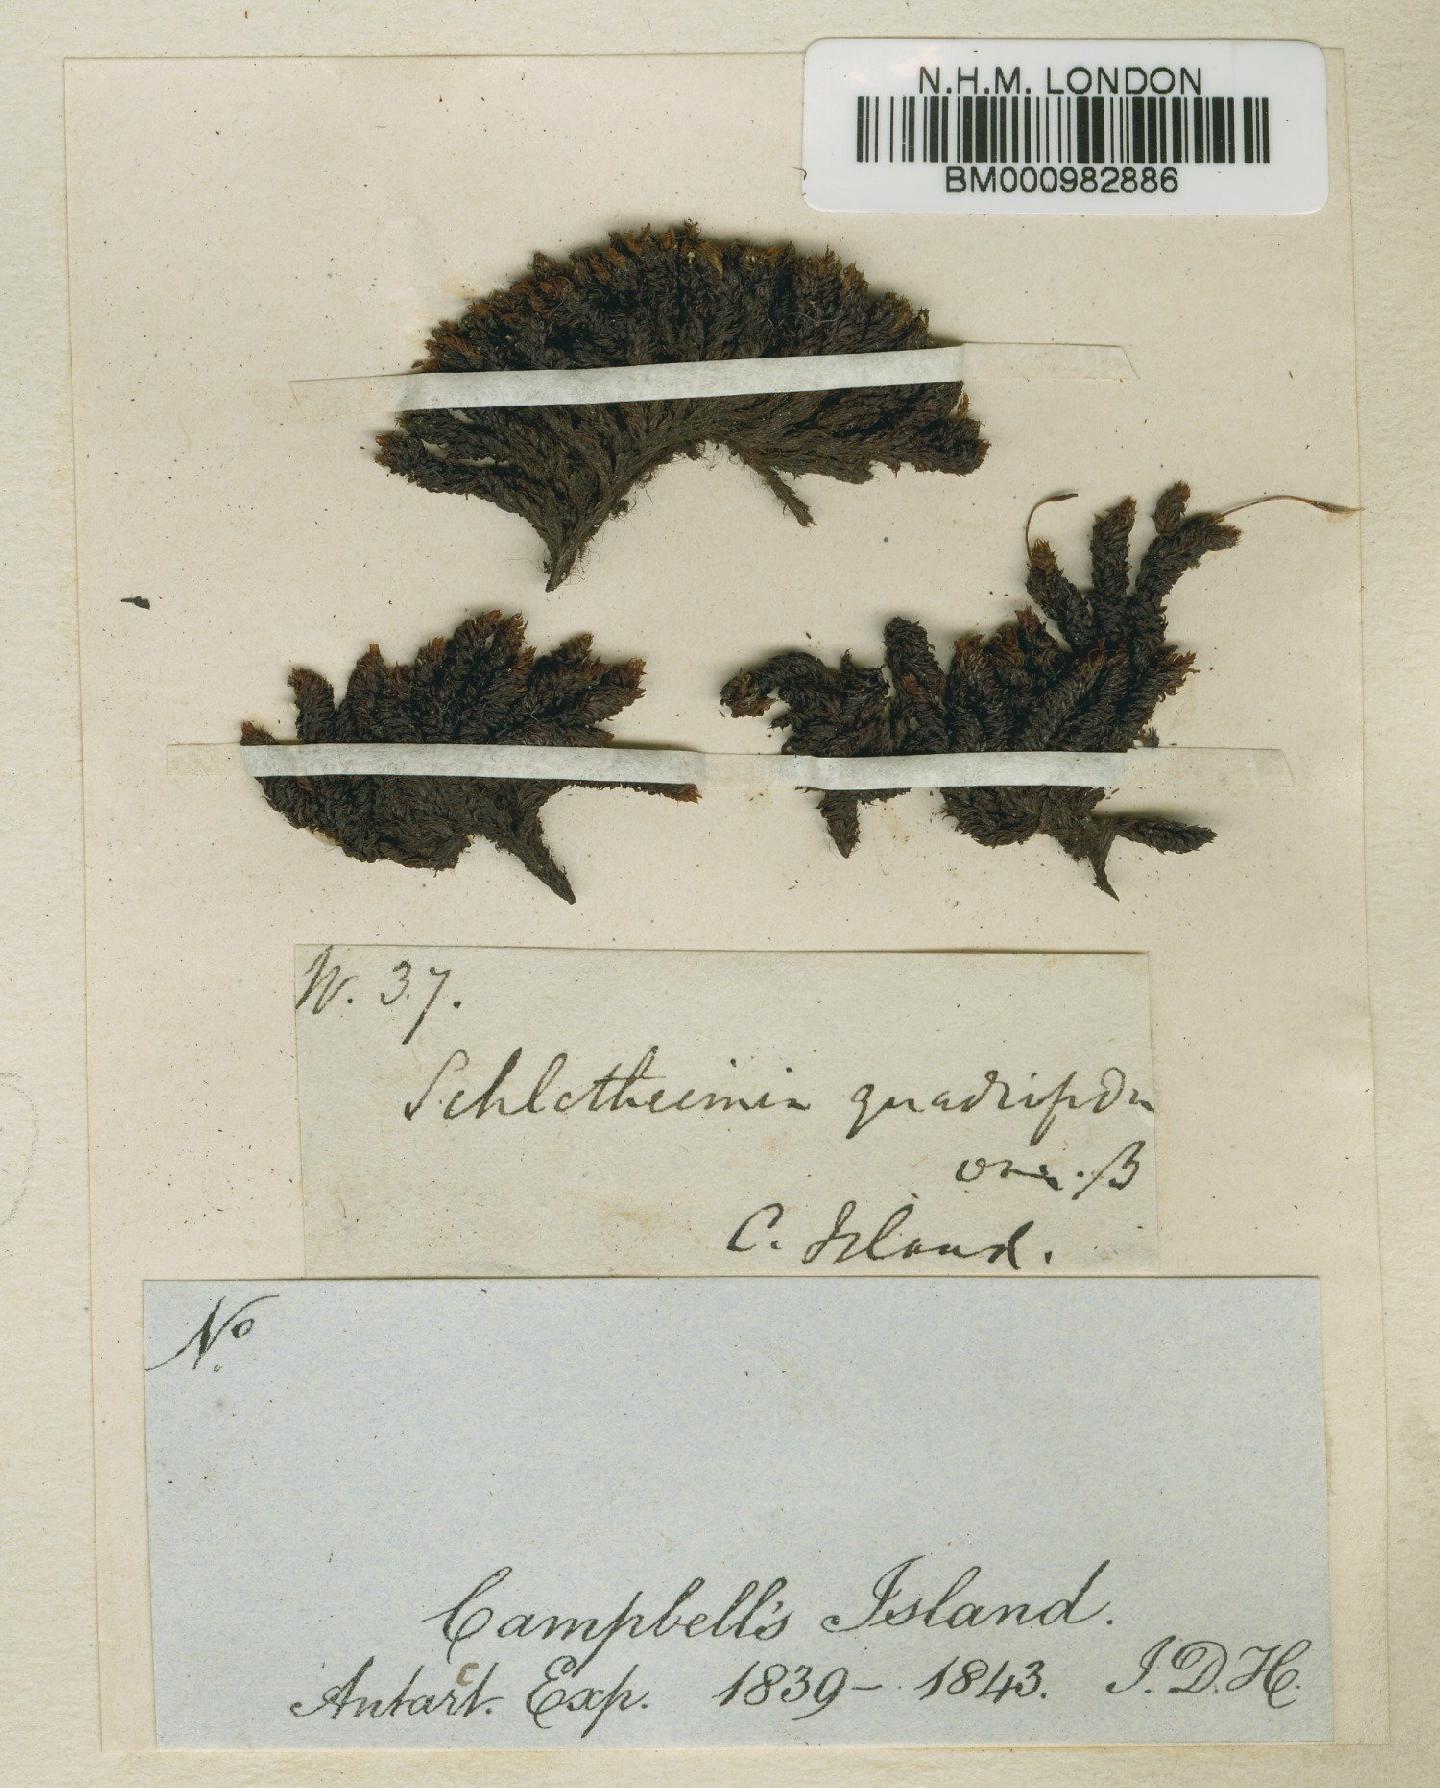 N.H.M. LONDON
BM000982886
W. 37.
Schlotheimia
var. β
C. Island.
No
Campbell's Island.
Antarct. Exp. 1839 – 1843. J. D. H.